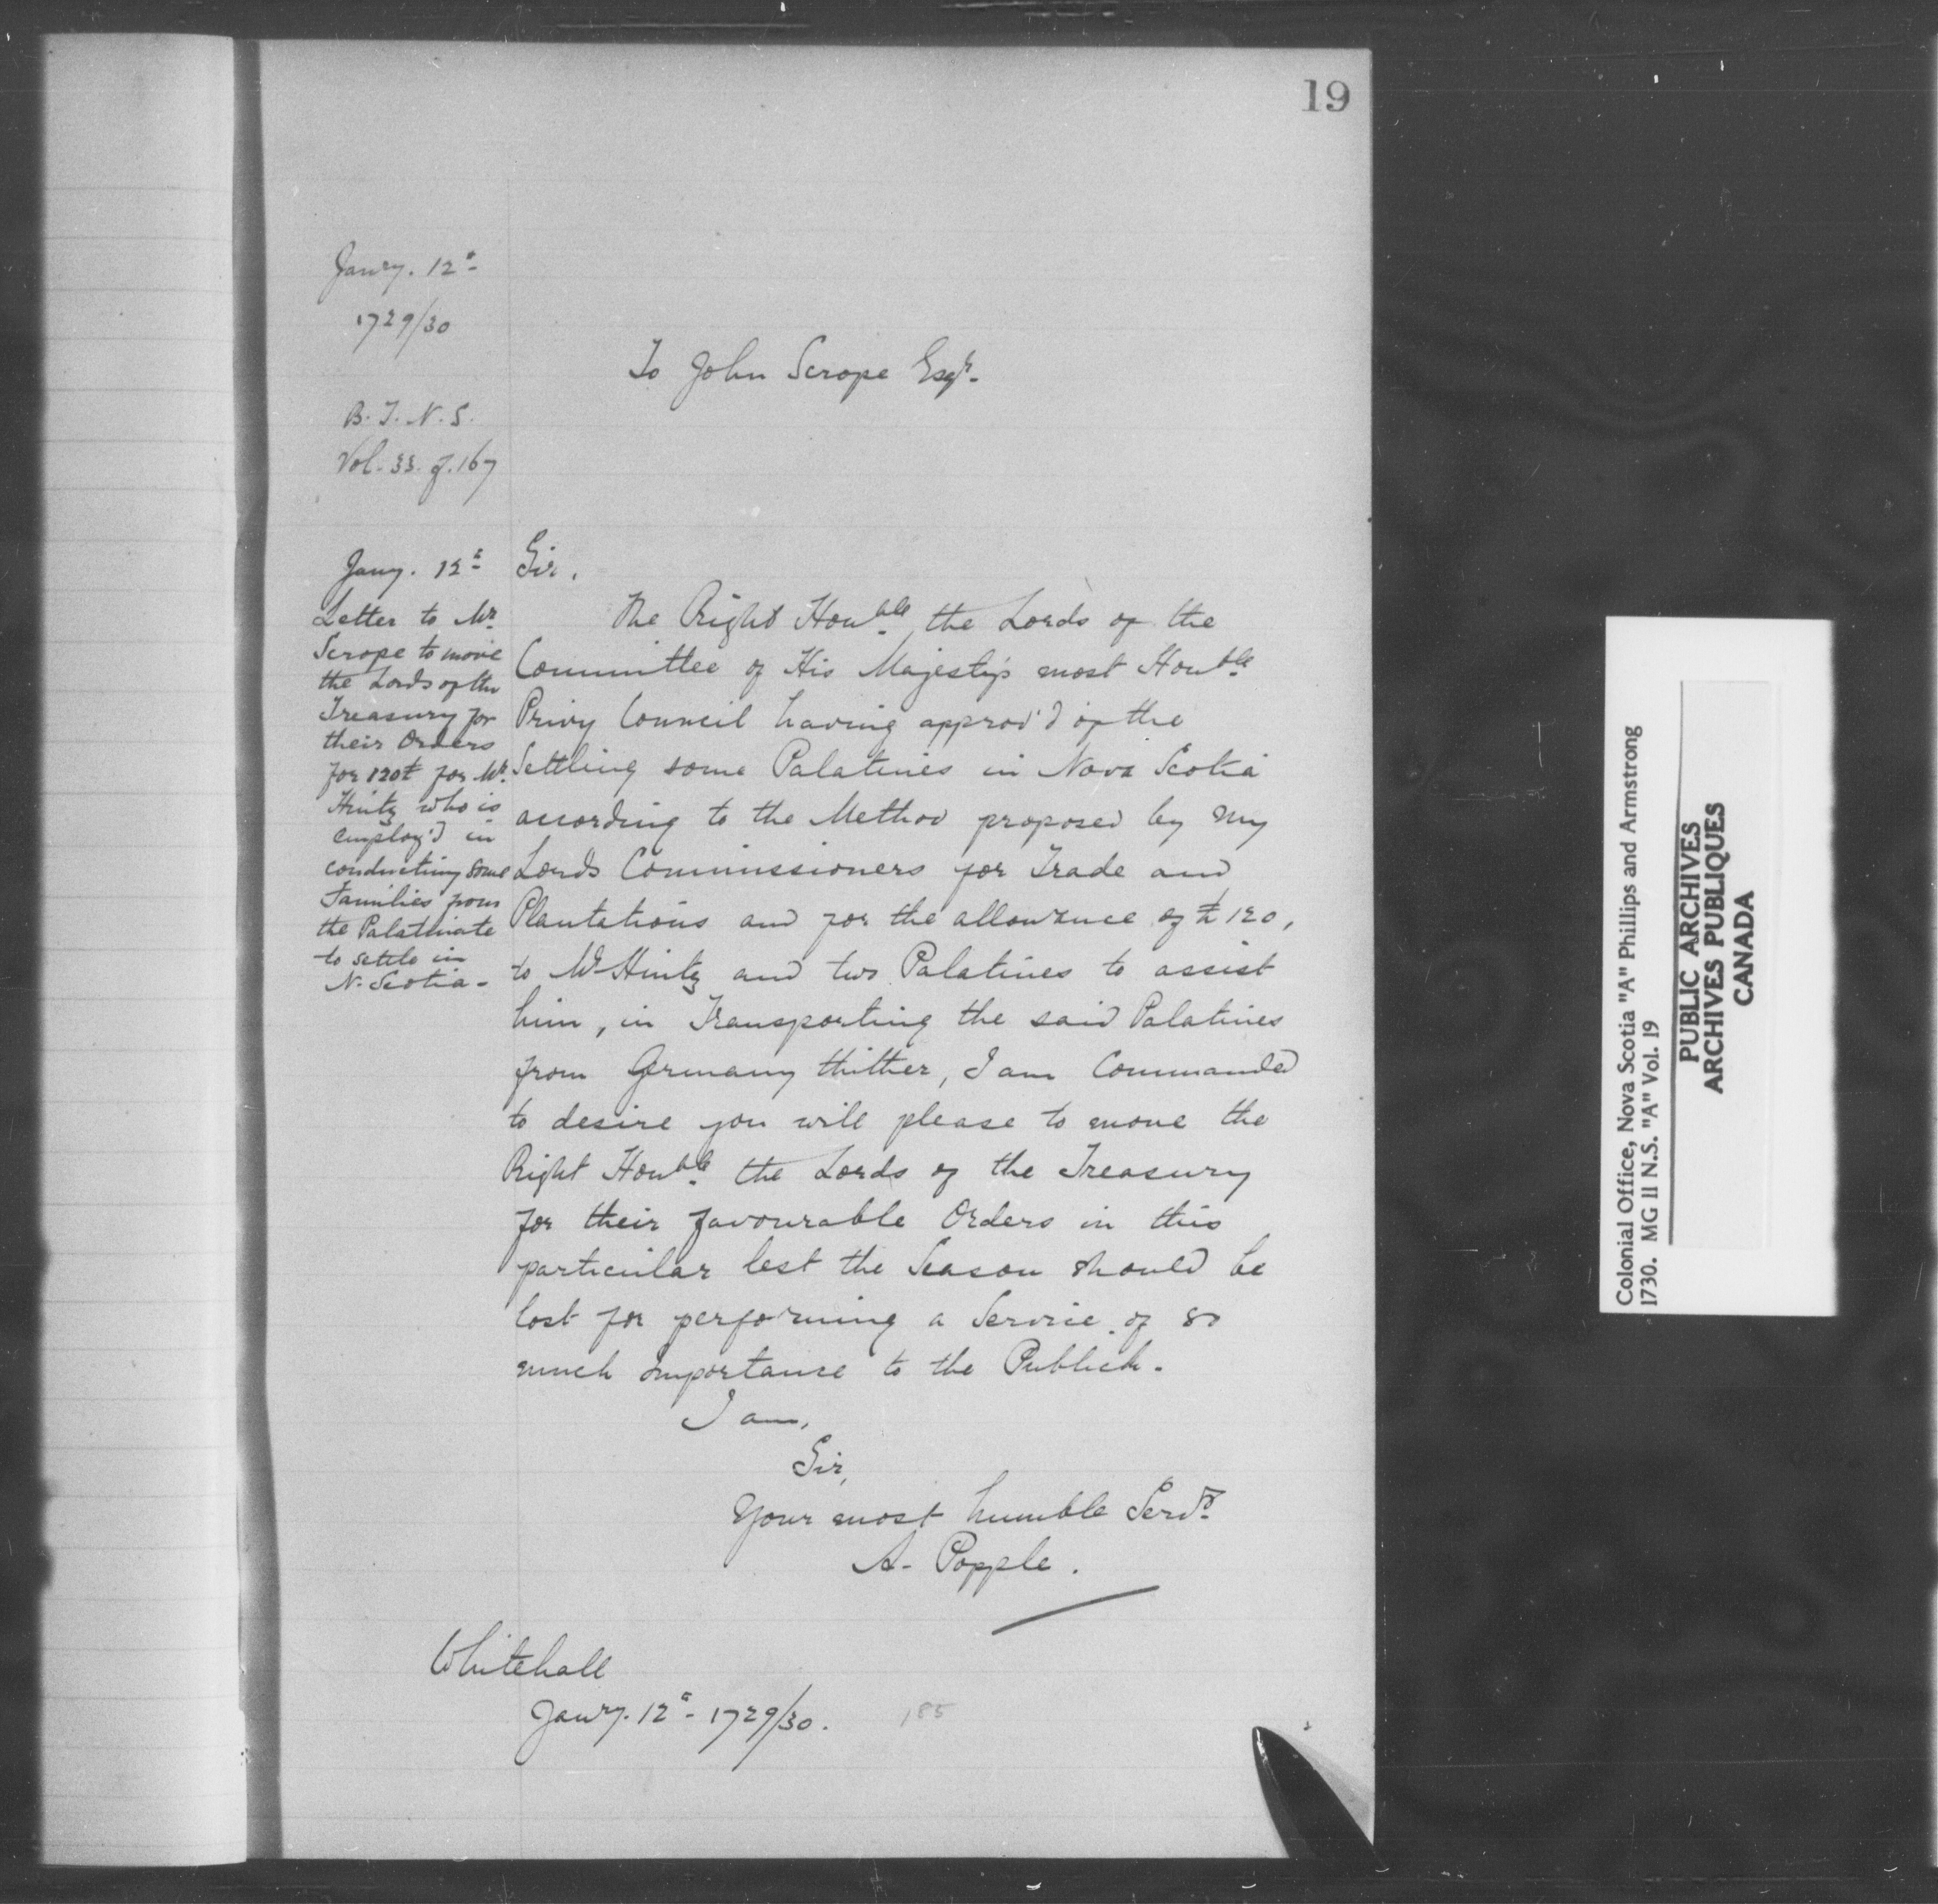 19
Janry. 12th
1729/30
To John Scrope Esqr.
B. T. N. S.
Vol. 33. f. 167
Jany. 12th
Letter to Mr.
Scrope to move
the Lords of the
Treasury for
their Orders
for 120£ for Mr.
Hintz who is
employ'd in
conducting some
Families from
the Palatinate
to settle in
N. Scotia-
Sir,
The Right Honble. the Lords of the
Committee of His Majesty's most Honble.
Privy Council having approv'd of the
Settling some Palatines in Nova Scotia
according to the Method proposed by my
Lords Commissioners for Trade and
Plantations and for the allowance of £120,
to Mr Hintz and two Palatines to assist
him, in Transporting the said Palatines
from Germany thither, I am Commanded
to desire you will please to move the
Right Honble. the Lords of the Treasury
for their favourable Orders in this
particular lest the Season should be
lost for performing a Service of so
much importance to the Publick.
I am,
Sir,
Your most humble Servt.
A. Popple.
Whitehall
Janry. 12th 1729/30.
185
Colonial Office, Nova Scotia "A" Phillips and Armstrong
1730. MG 11 N.S. "A" Vol. 19
PUBLIC ARCHIVES
ARCHIVES PUBLIQUES
CANADA